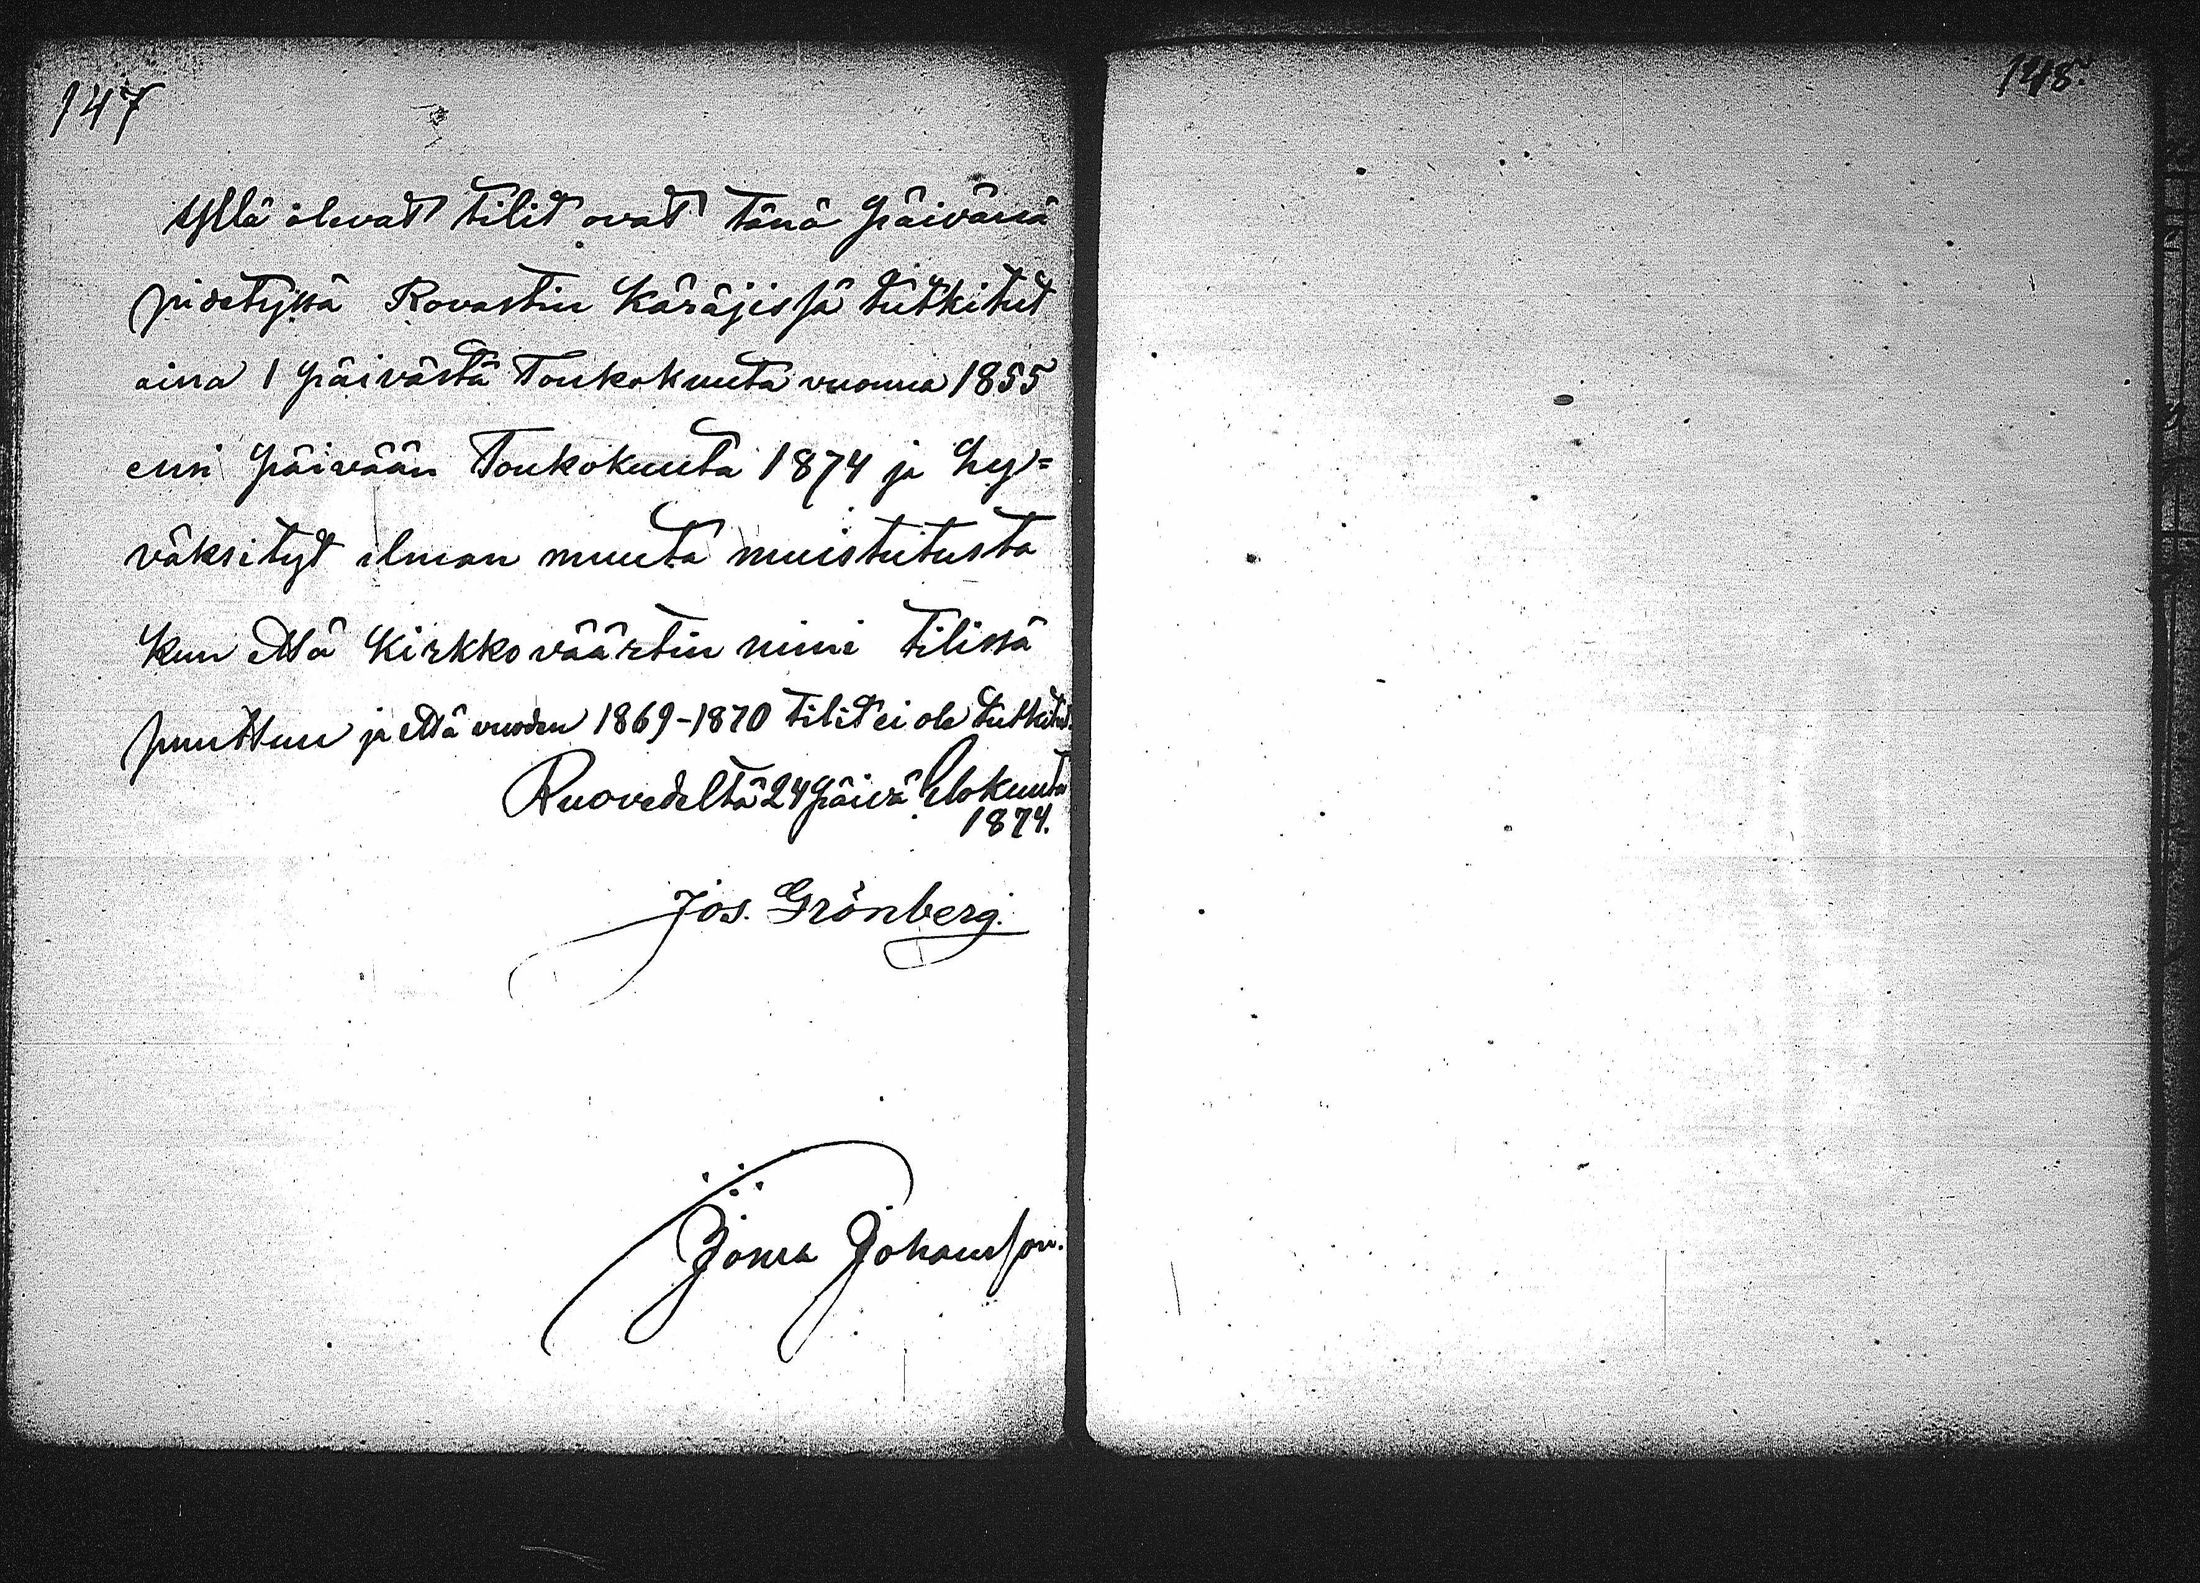 147
148.
Yllä olevat tilit ovat tänä päivänä
pidetyissä Rovastin Käräjissä tutkitut
aina 1 päivästä Toukokuuta vuonna 1855
ensi päivään Toukokuuta 1874 ja hy=
väksityt ilman muuta muistutusta
kun että Kirkkoväärtin nimi tilissä
puuttuu ja että vuoden 1869-1870 tilit ei ole tutkitut.
Ruovedeltä 24 päivä Elokuuta
1874.
Jos. Grönberg.
Johansson.